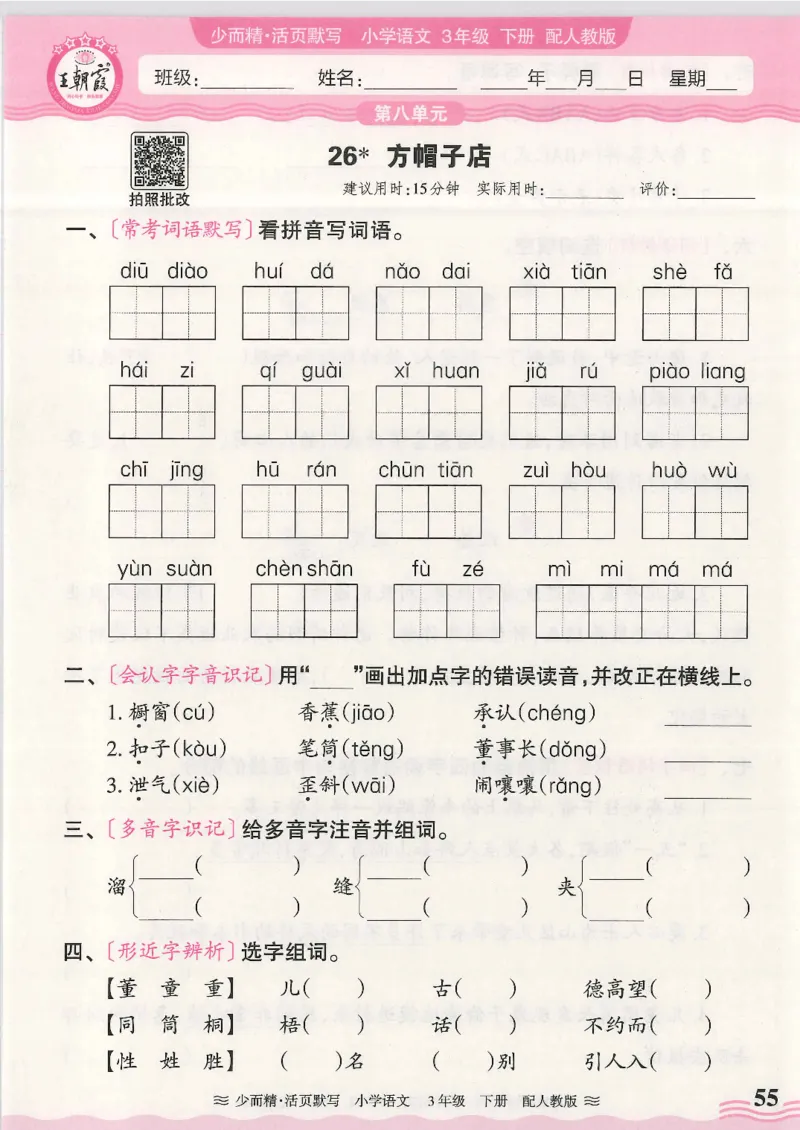 少而精·活页默写 小学语文 3年级 下册 配人教版
王朝霞
班级:________ 姓名:________ ____年___月___日 星期___
第八单元
26* 方帽子店
拍照批改
建议用时:15分钟 实际用时:________ 评价:________
一、〔常考词语默写〕看拼音写词语。
diū diào huí dá nǎo dai xià tiān shè fǎ
hái zi qí guài xǐ huan jiǎ rú piào liang
chī jīng hū rán chūn tiān zuì hòu huò wù
yùn suàn chèn shān fù zé mì mi má má
二、〔会认字字音识记〕用“____”画出加点字的错误读音,并改正在横线上。
1. 橱窗(cú) 香蕉(jiāo) 承认(chéng) ________
2. 扣子(kòu) 笔筒(těng) 董事长(dǒng) ________
3. 泄气(xiè) 歪斜(wāi) 闹嚷嚷(rǎng) ________
三、〔多音字识记〕给多音字注音并组词。
______( ) ______( ) ______( )
溜 缝 夹
______( ) ______( ) ______( )
四、〔形近字辨析〕选字组词。
【董 童 重】 儿( ) 古( ) 德高望( )
【同 筒 桐】 梧( ) 话( ) 不约而( )
【性 姓 胜】 ( )名 ( )别 引人入( )
少而精·活页默写 小学语文 3年级 下册 配人教版
55